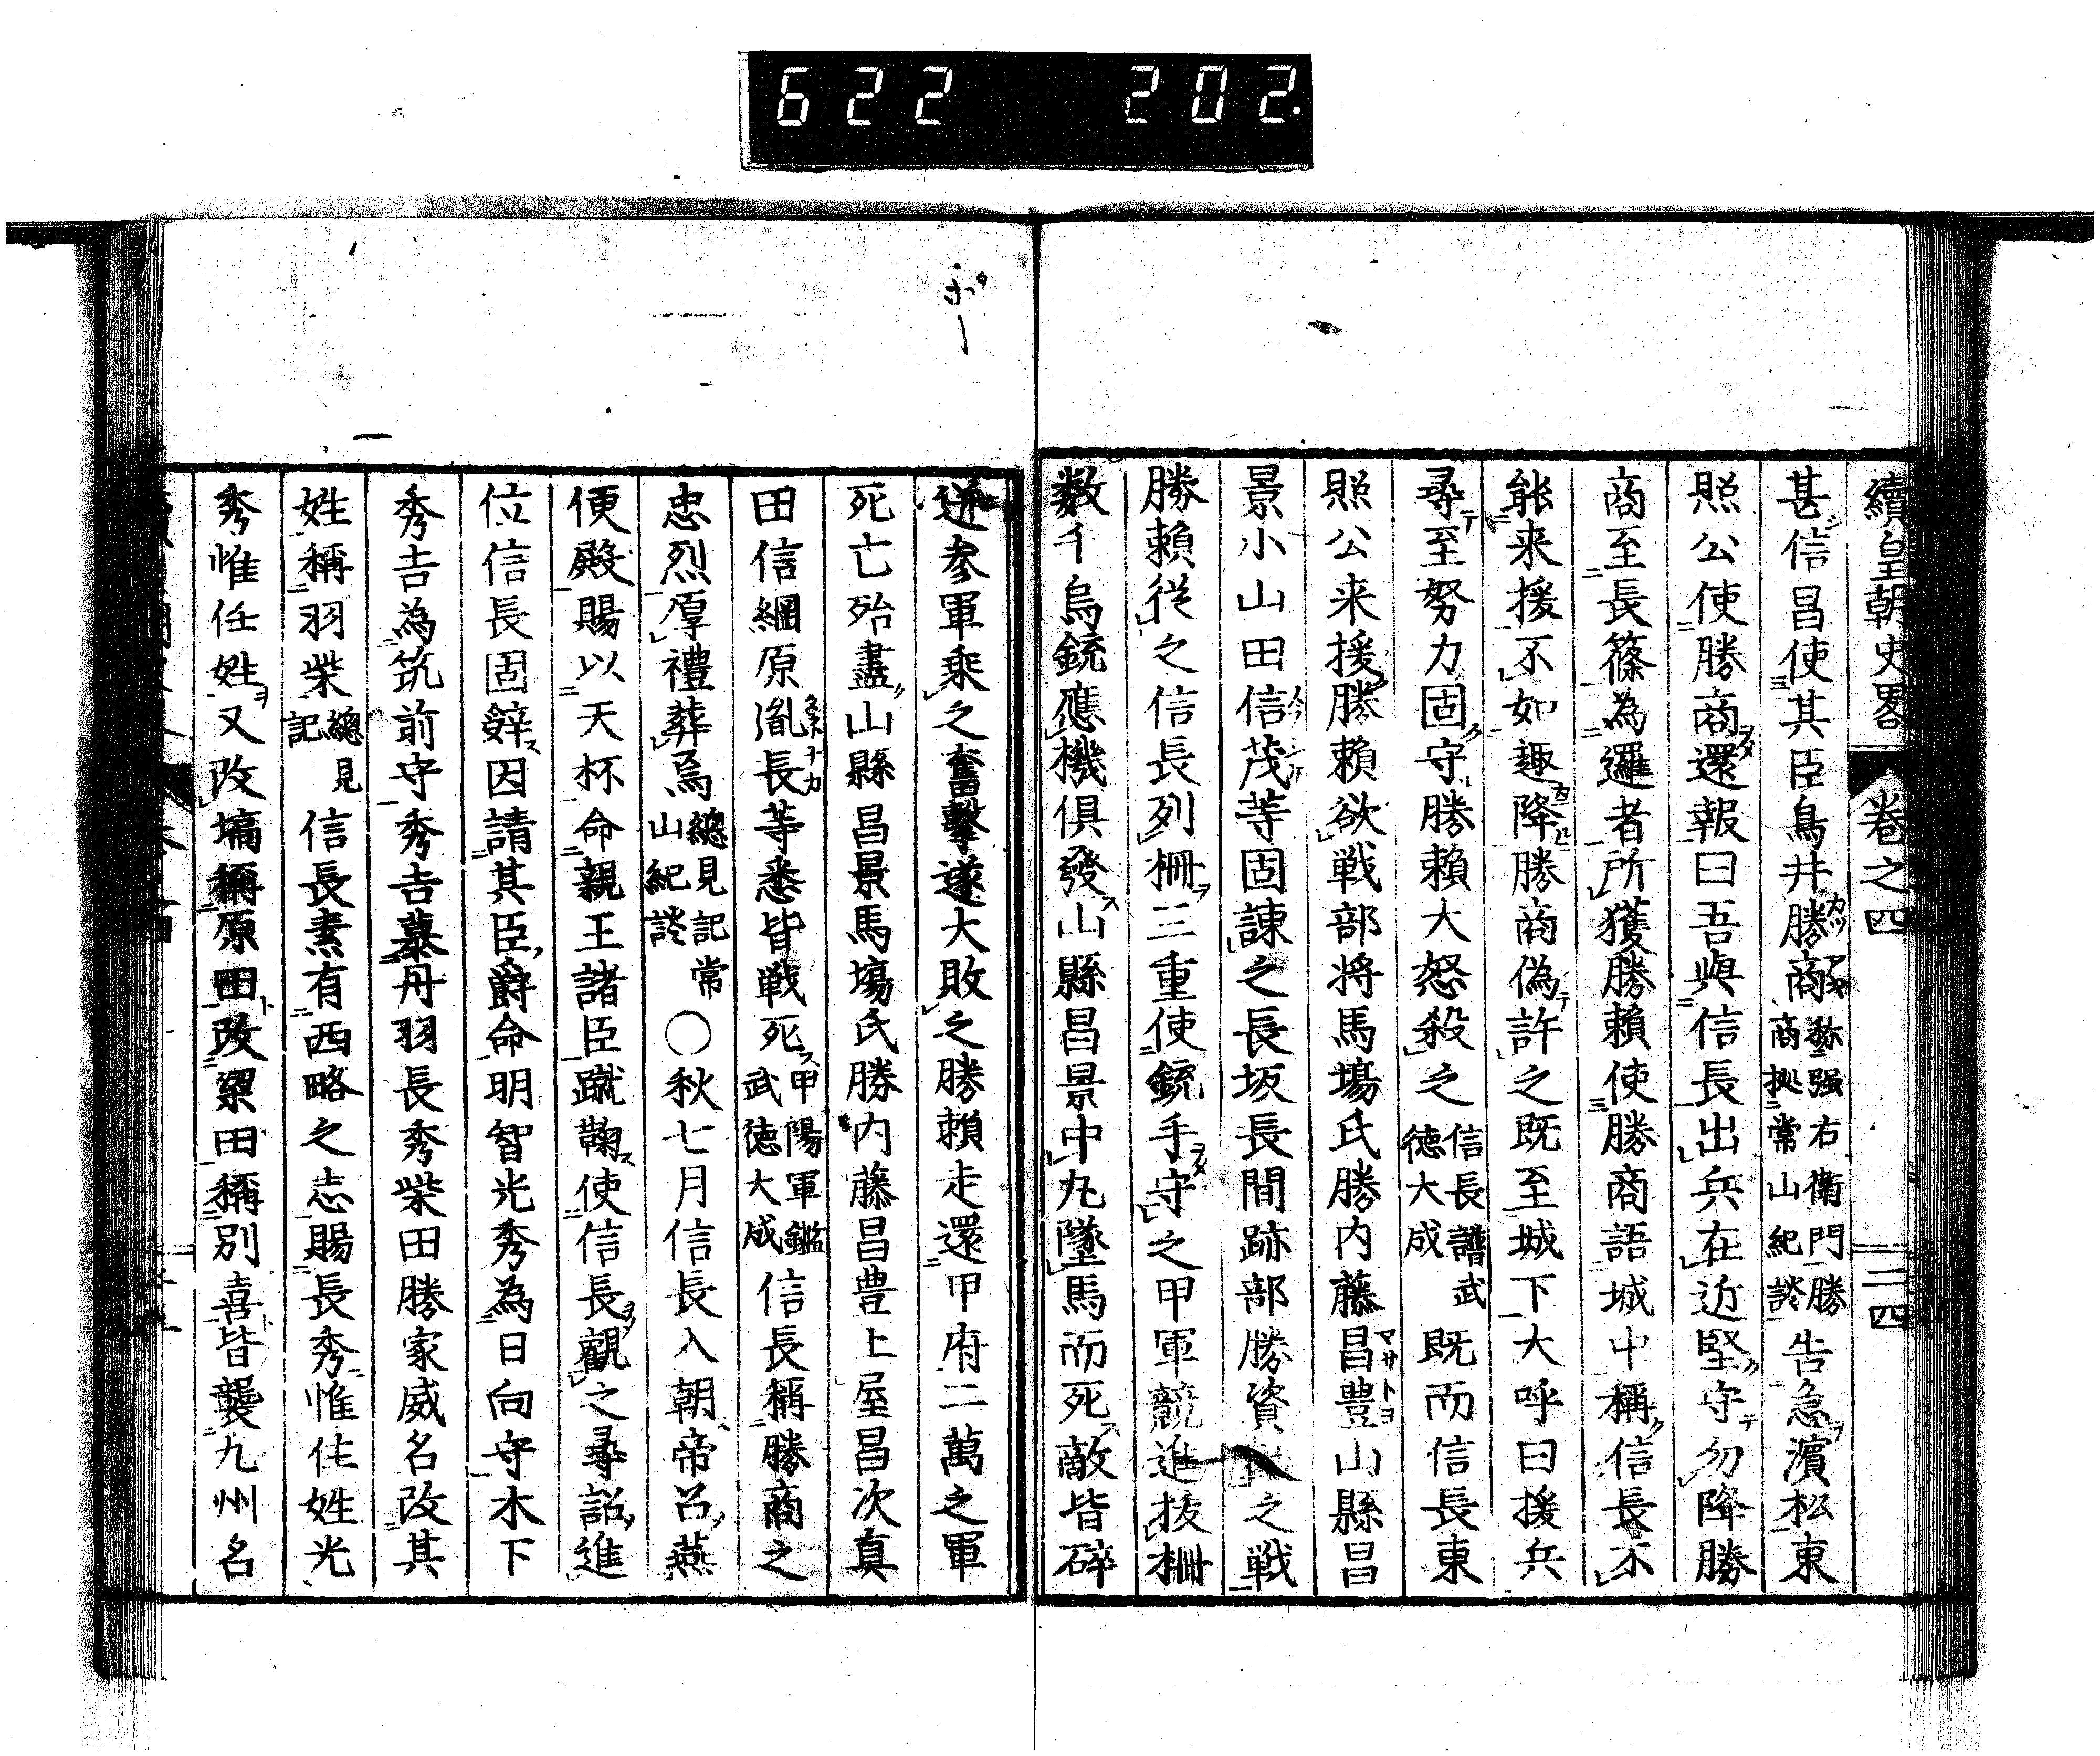 622 202.
續皇朝史畧 卷之四 二四
甚信昌使其臣鳥井勝商称强右衛門勝商拠常山紀談告急濱松東
照公使勝商還報曰吾與信長出兵在近堅守勿降勝
商至長篠為邏者所獲勝賴使勝商語城中稱信長不
能来援不如趣降勝商偽許之既至城下大呼曰援兵
尋至努力固守勝賴大怒殺之信長譜武徳大成既而信長東
照公来援勝賴欲戦部将馬塲氏勝内藤昌豊山縣昌
景小山田信茂等固諌之長坂長間跡部勝資之戦
勝賴従之信長列柵三重使銃手守之甲軍競進抜柵
数千鳥銃應機俱發山縣昌景中丸墜馬而死敵皆碎
迸参軍乘之奮擊遂大敗之勝賴走還甲府二萬之軍
死亡殆盡山縣昌景馬塲氏勝内藤昌豊土屋昌次真
田信綱原胤長等悉皆戦死甲陽軍鑑武徳大成信長稱勝商之
忠烈厚禮葬焉總見記常山紀談〇秋七月信長入朝帝召燕
便殿賜以天杯命親王諸臣蹴鞠使信長觀之尋詔進
位信長固辭因請其臣爵命明智光秀為日向守木下
秀吉為筑前守秀吉慕丹羽長秀柴田勝家威名改其
姓稱羽柴總見記信長素有西略之志賜長秀惟住姓光
秀惟任姓又改塙稱原田改梁田稱別喜皆襲九州名